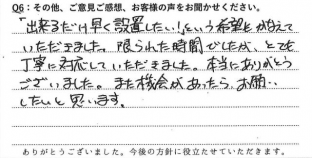 Q6：その他、ご意見ご感想、お客様の声をお聞かせください。
「出来るだけ早く設置したい！」という希望をかなえて
いただきました。限られた時間でしたが、とても
丁寧に対応していただきました。本当にありがとう
ございました。また機会があったら、お願い
したいと思います。
ありがとうございました。今後の方針に役立たせていただきます。